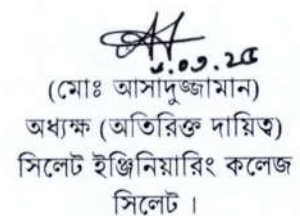 (মোঃ আসাদুজ্জামান)
অধ্যক্ষ (অতিরিক্ত দায়িত্ব)
সিলেট ইঞ্জিনিয়ারিং কলেজ
সিলেট ।